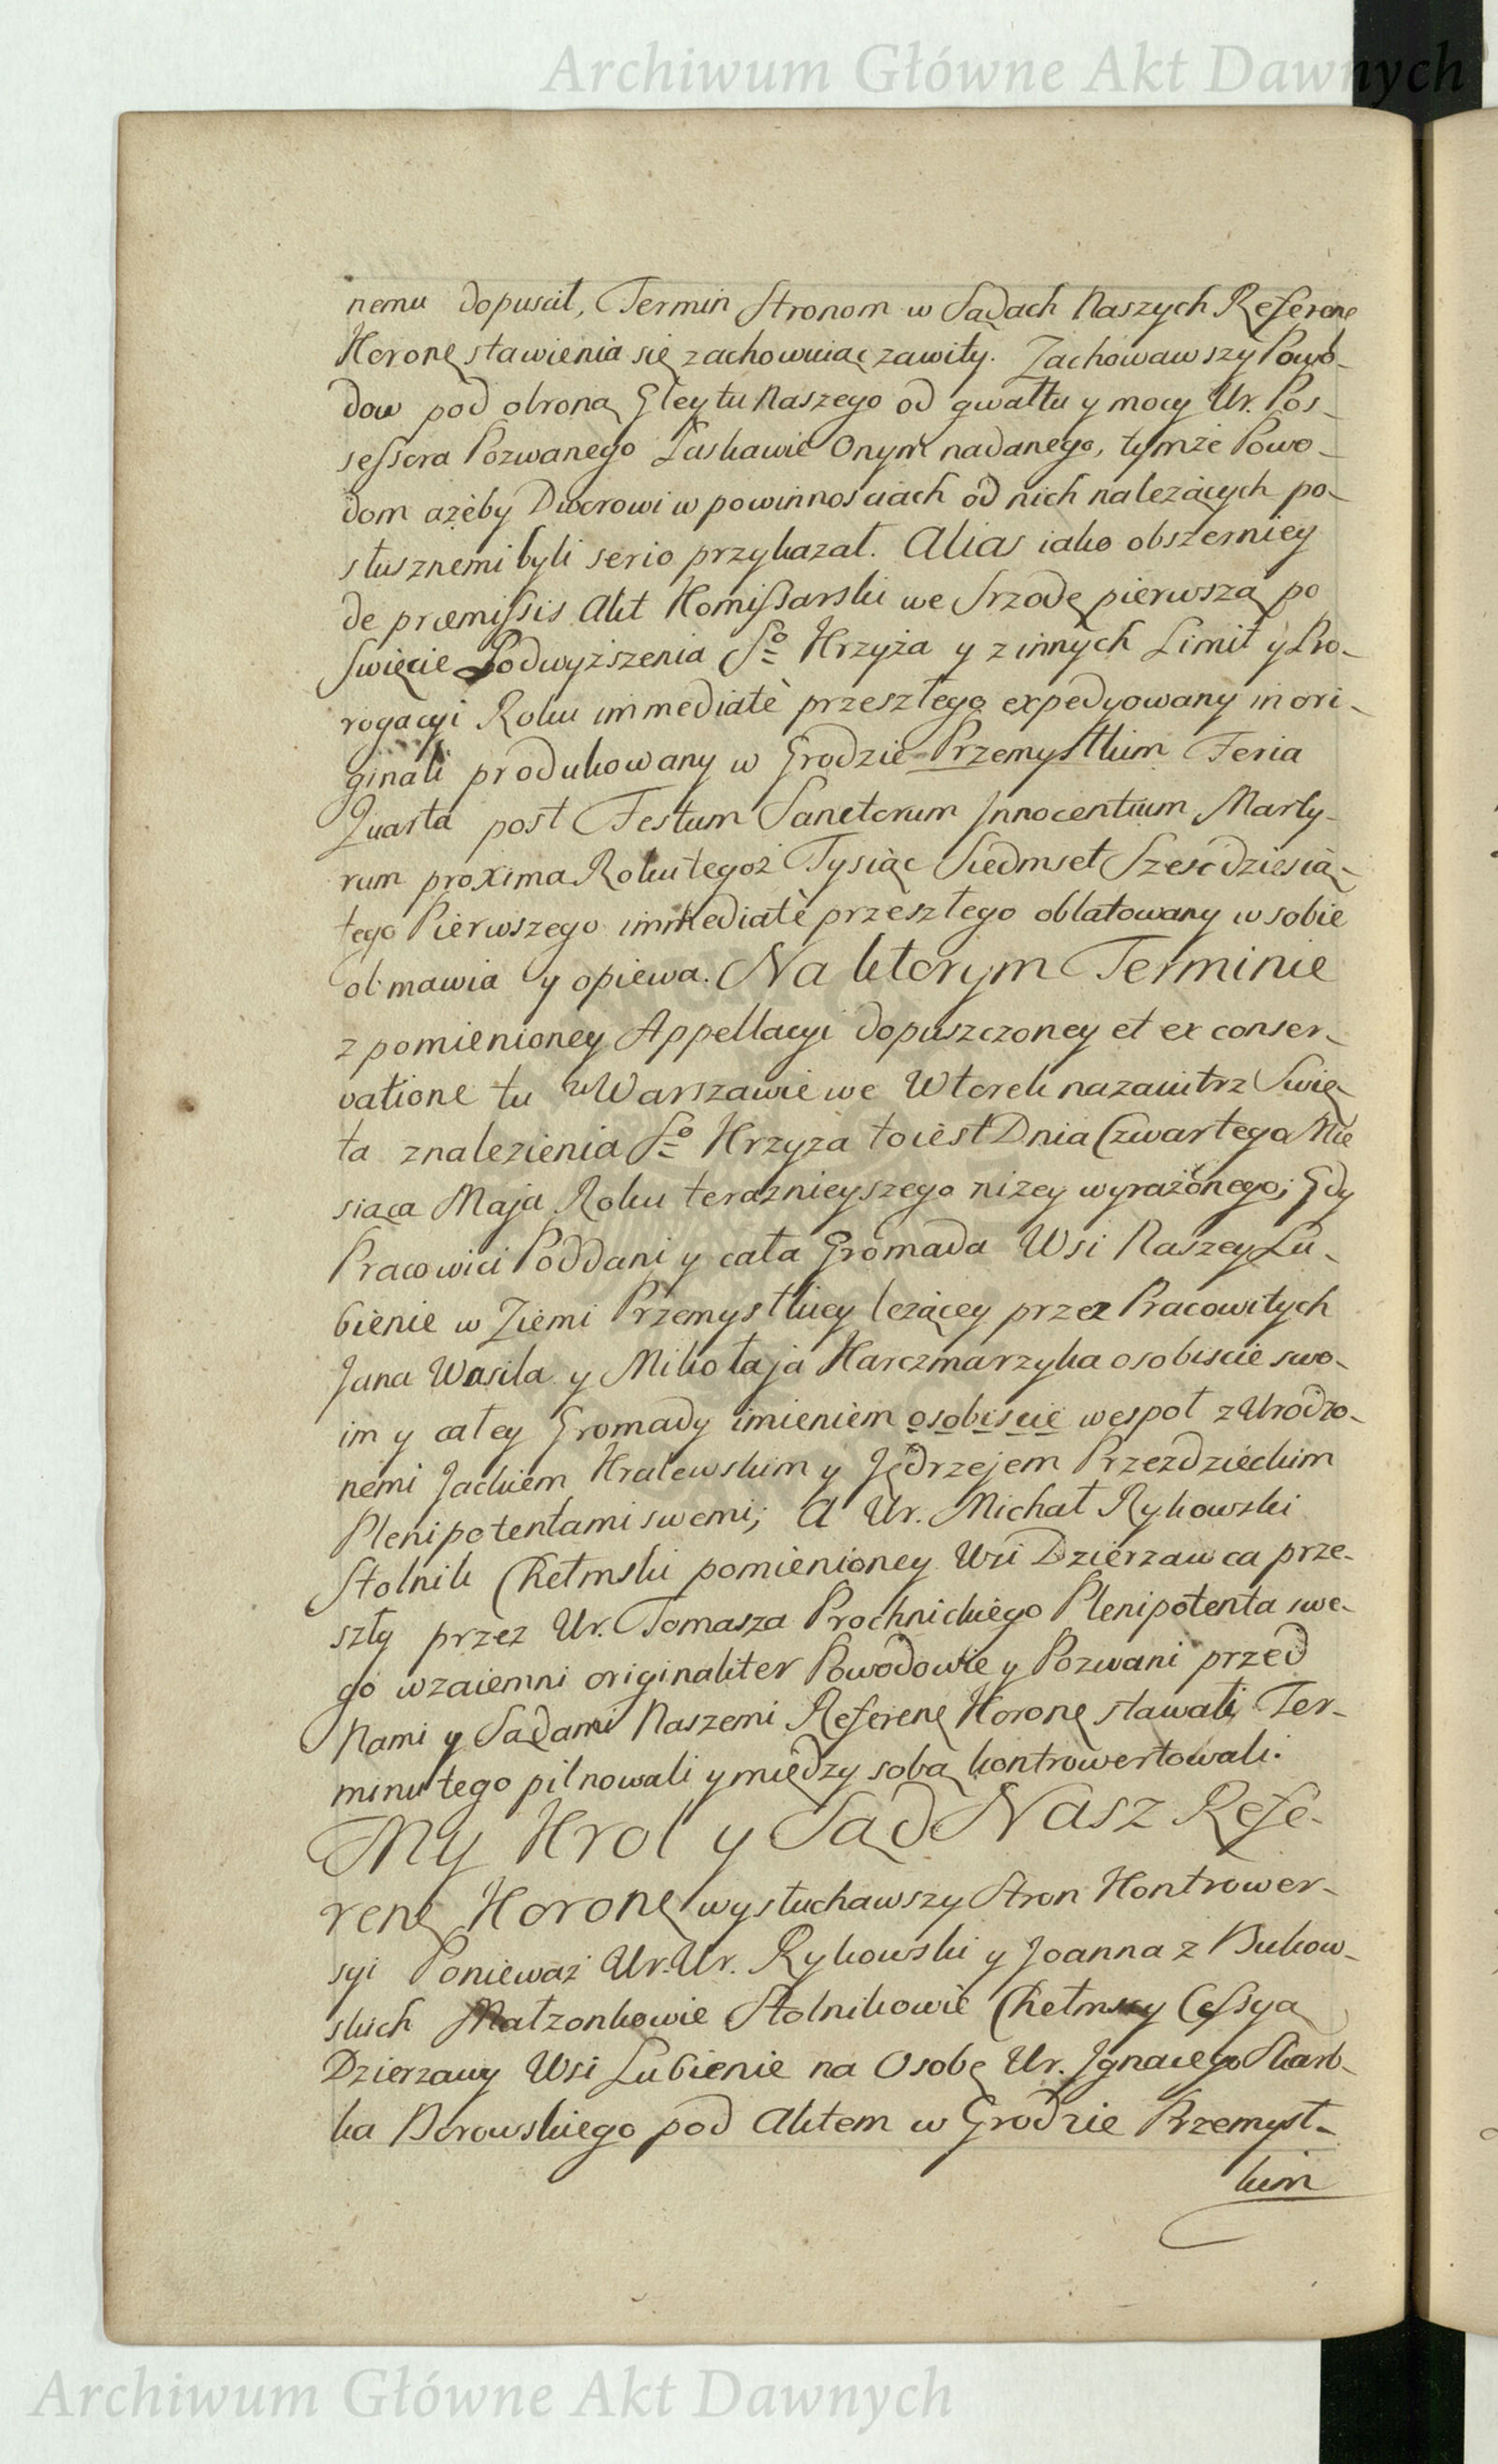 Archiwum Główne Akt Dawnych
nemu dopuscił, Termin Stronom w Sądach Naszych Referenę
Koronę stawienia się zachowuiąc zawity. Zachowawszy Powo-
dow pod obroną Gleytu Naszego od gwałtu y mocy Ur. Pos-
sessora Pozwanego Łaskawie Onym nadanego, tymże Powo-
dom ażeby Dworowi w powinnosciach od nich należących po-
słusznemi byli serio przykazał. Alias iako obszerniey
de præmissis Akt Komissarski we Srzodę pierwszą po
Swięcie Podwyższenia So Krzyża y z innych Limit y Pro-
rogacyi Roku immediatè przeszłego expedyowany in ori-
ginali produkowany w Grodzie Przemyslkim Feria
Quarta post Festum Sanctorum Innocentium Marty-
rum proxima Roku tegoż Tysiąc Siedmset Szescdziesią-
tego Pierwszego immediatè przeszłego oblatowany w sobie
obmawia y opiewa. Na ktorym Terminie
z pomienioney Appellacyi dopuszczoney et ex conser-
vatione tu w Warszawie we Wtorek nazaiutrz Swię
ta znalezienia So Krzyza toiest Dnia Czwartego Mie
siąca Maja Roku teraznieyszego niżey wyrażonego; Gdy
Pracowici Poddani y cała Gromada Wsi Naszey Lu-
bienie w Ziemi Przemyslkiey leżącey przez Pracowitych
Jana Wasila y Mikołaja Karczmarzyka osobiscie swo-
im y całey Gromady imieniem osobiscie wespoł z Urodzo-
nemi Jackiem Kralewskim y Jędrzejem Przezdzieckim
Plenipotentami swemi; A Ur. Michał Rykowski
Stolnik Chełmski pomienioney Wsi Dzierzawca prze-
szły przez Ur. Tomasza Prochnickiego Plenipotenta swe-
go wzaiemni originaliter Powodowie y Pozwani przed
Nami y Sądami Naszemi Referenę Koronę stawali Ter-
minu tego pilnowali y między sobą kontrowertowali.
My Krol y Sąd Nasz Refe-
renę Koronę wysłuchawszy Stron Kontrower-
syi Ponieważ Ur. Ur. Rykowski y Joanna z Bukow-
skich Małzonkowie Stolnikowie Chełmscy Cessyą
Dzierzawy Wsi Lubienie na Osobę Ur. Ignacego Skarb-
ka Borowskiego pod Aktem w Grodzie Przemysl-
kim
Archiwum Główne Akt Dawnych